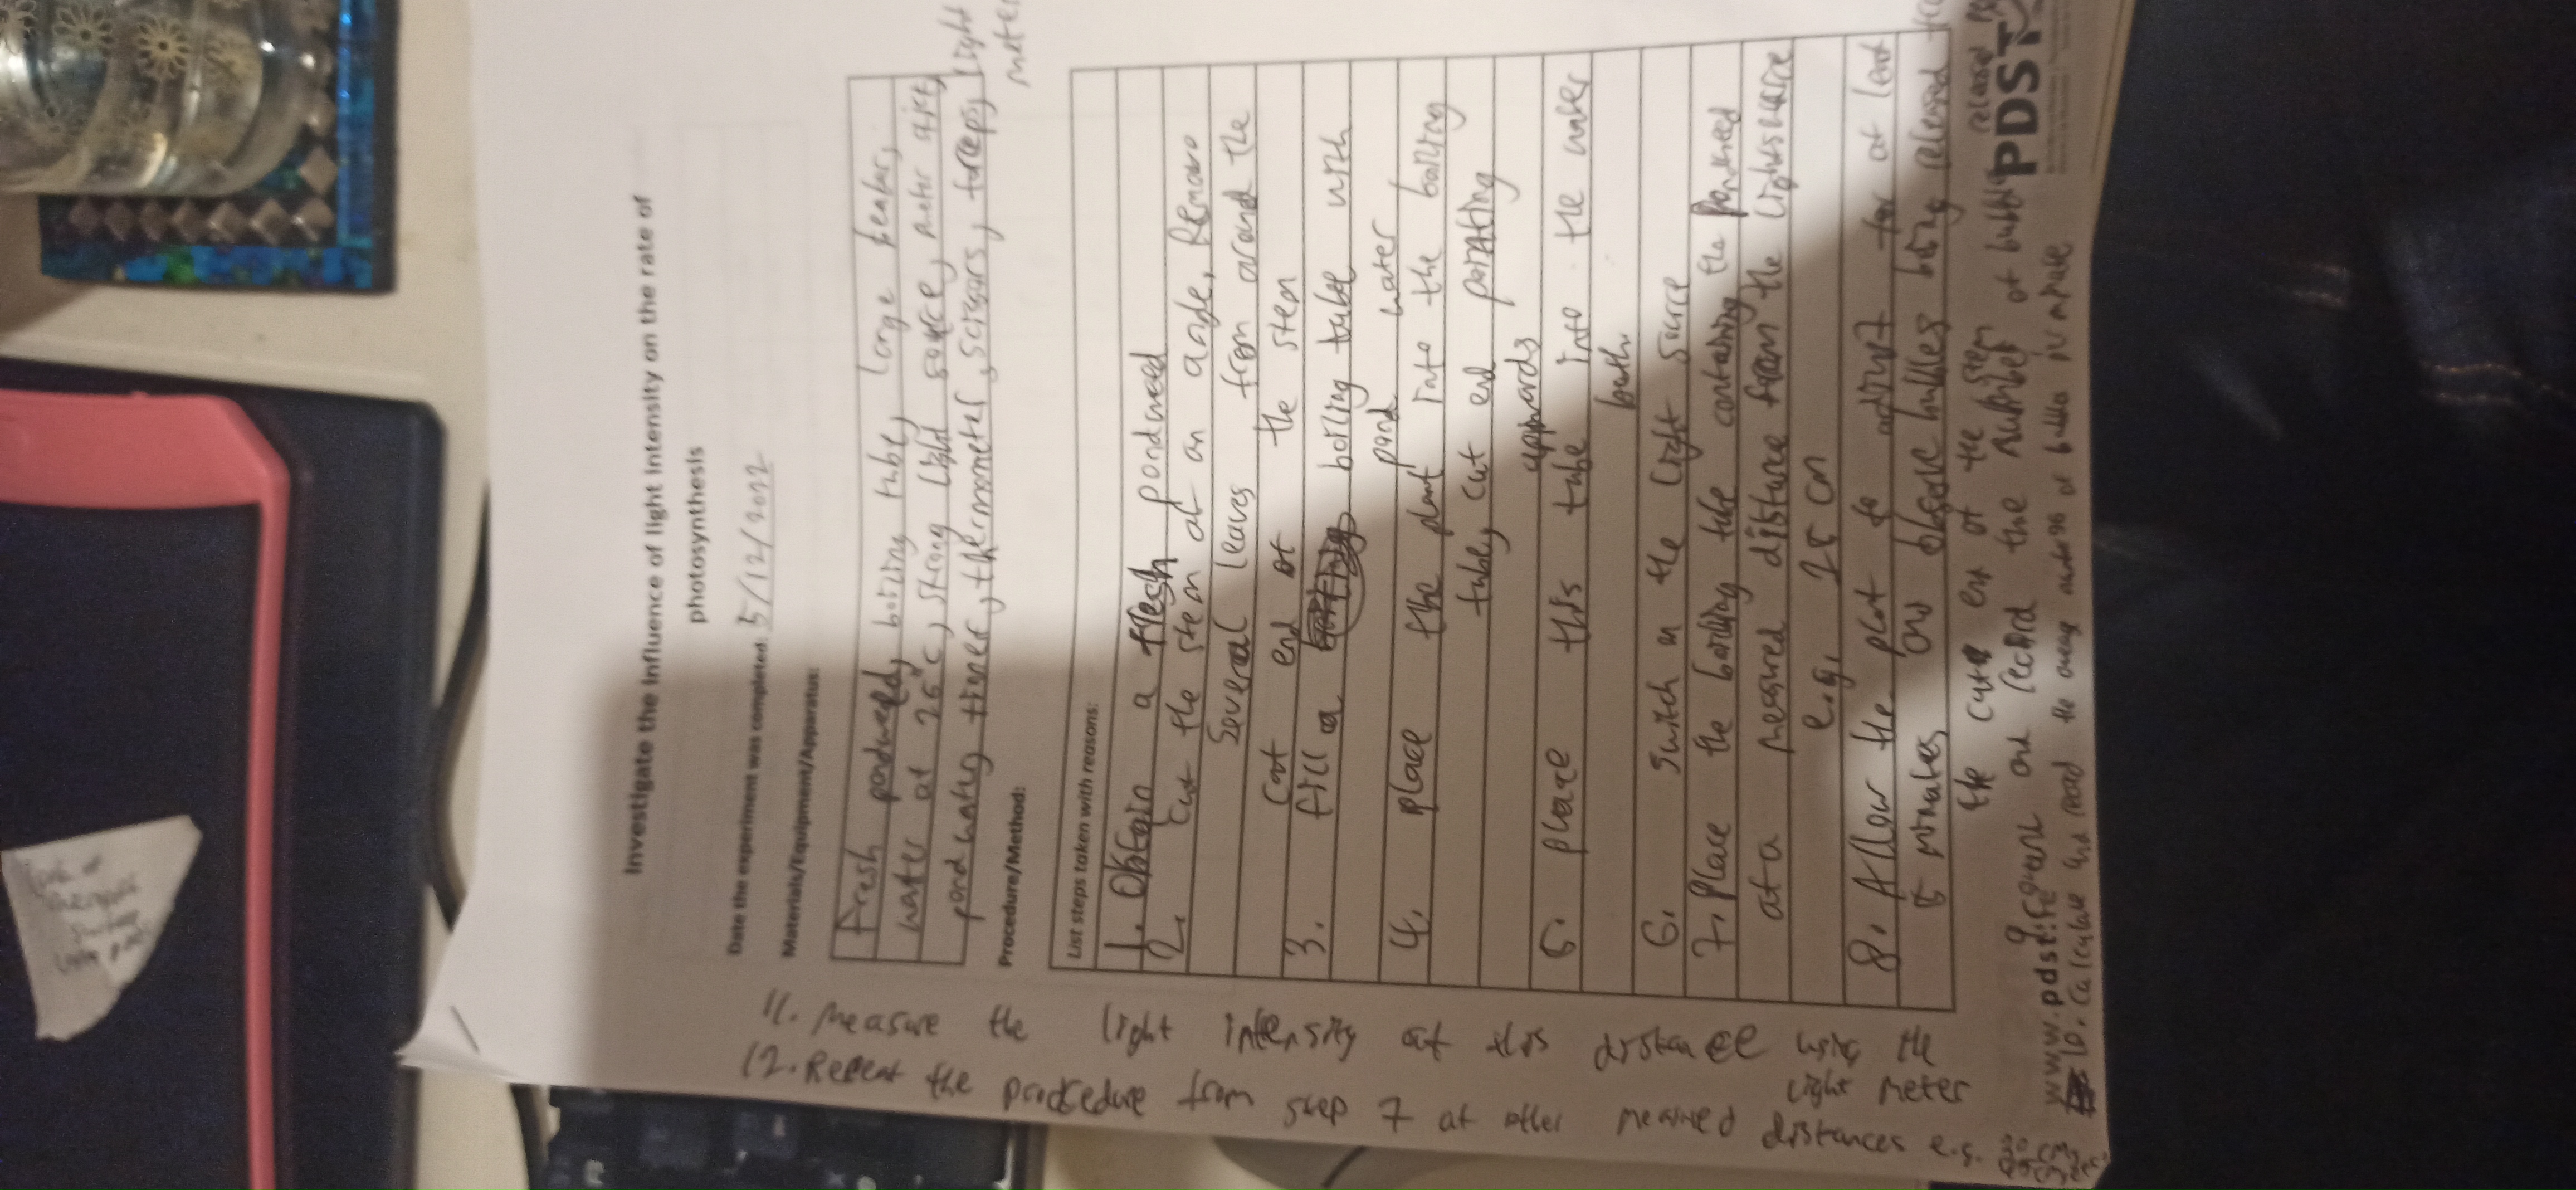 Investigate the influence of light intensity on the rate of
photosynthesis
Date the experiment was completed: 5/12/2022
Materials/Equipment/Apparatus:
Fresh pondweed, boiling tube, large beaker,
water at 25°C, strong light source, meter stick,
pond water, timer, thermometer, scissors, forceps, light
meter
Procedure/Method:
List steps taken with reasons:
1. Obtain a fresh pondweed
2. Cut the stem at an angle, Remove
several leaves from around the
cut end of the stem
3. fill a boiling tube with
pond water,
4. place the plant into the boiling
tube, cut end pointing
upwards
5. place this tube into the water
bath
6. switch on the light source
7. Place the boiling tube containing the Pondweed
at a measured distance from the lightsource
e.g. 15 cm
8. Allow the plant to adjust for at least
5 minutes and observe bubbles being released
the cut end of the stem
9. count and record the number of bubbles released
www.pdst.ie
PDST
10. calculate and record the average of bubbles
11. Measure the light intensity at this distance using the
light meter
12. Repeat the procedure from step 7 at other measured distances e.g. 30 cm